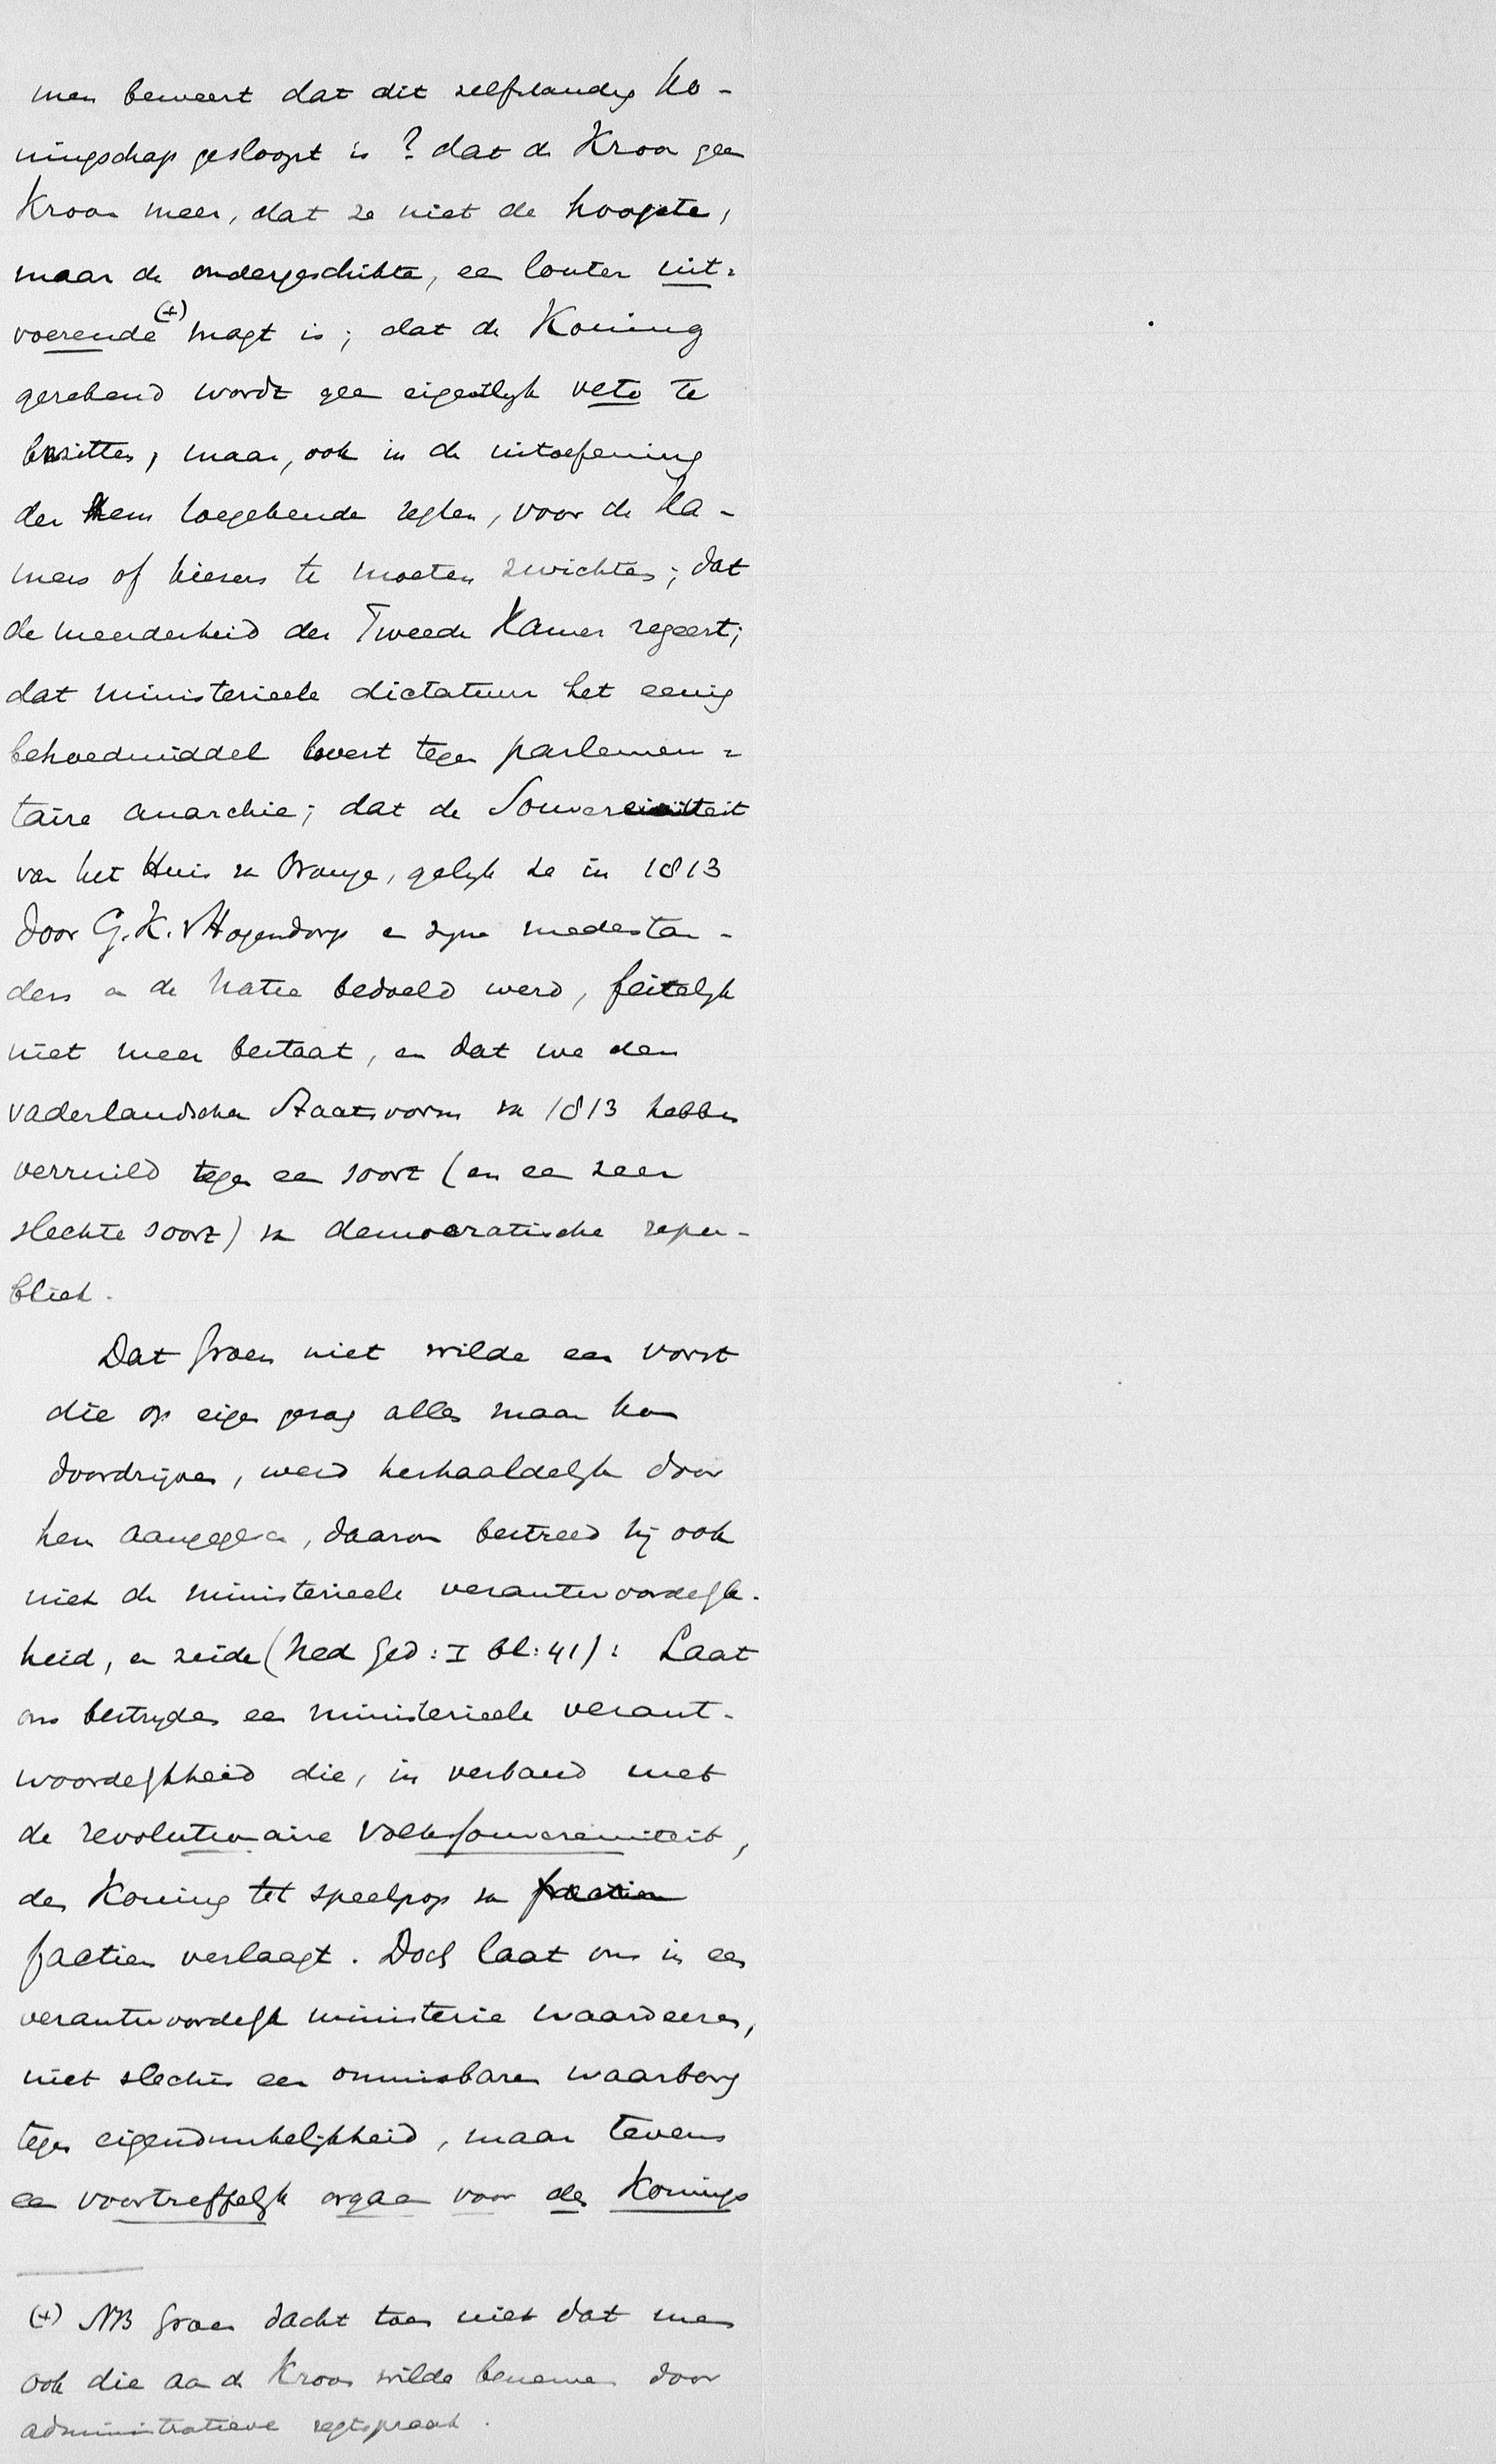 men beweert dat dit zelfstandig Ko-
ningschap gesloopt is? dat de Kroon geen
Kroon meer, dat ze niet de hoogste,
maar de ondergeschikte, een louter uit-
voerende (+) magt is; dat de Koning
gerekend wordt geen eigentlyk veto te
bezitten, maar, ook in de uitoefening
der hem toegekende regten, voor de Ka-
mers of kiezers te moeten zwichten; dat
de meerderheid der Tweede Kamer regeert;
dat ministerieele dictatuur het eenig
behoedmiddel levert tegen parlemen-
taire anarchie; dat de Souvereiniteit
van het Huis van Oranje, gelyk ze in 1813
door G.K. v Hogendorp en zyne medestan-
ders en de natie bedoeld werd, feitelyk
niet meer bestaat, en dat we den
vaderlandschen Staatsvorm van 1813 hebben
verruild tegen een soort (en een zeer
slechte soort) van democratische repu-
bliek.
Dat Groen niet wilde een vorst
die op eigen gezag alles maar kon
doordrijven, werd herhaaldelyk door
hem aangegeven, daarom bestreed hij ook
niet de ministerieele verantwoordelyk-
heid, en zeide (Ned Ged: I bl: 41): Laat
ons bestryden een ministerieele verant-
woordelykheid die, in verband met
de revolutionaire volkssouvereiniteit,
den Koning tot speelpop van
factien verlaagt. Doch laat ons in een
verantwoordelyk ministerie waardeeren,
niet slechts een onmisbaren waarborg
tegen eigendunkelijkheid, maar tevens
een voortreffelyk orgaan voor des Konings
(+) NB Groen dacht toen niet dat men
ook die aan de Kroon wilde benemen door
administratieve regtspraak.